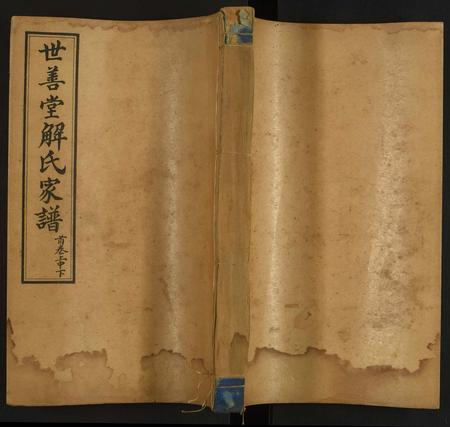 世善堂解氏家譜
前卷上中下